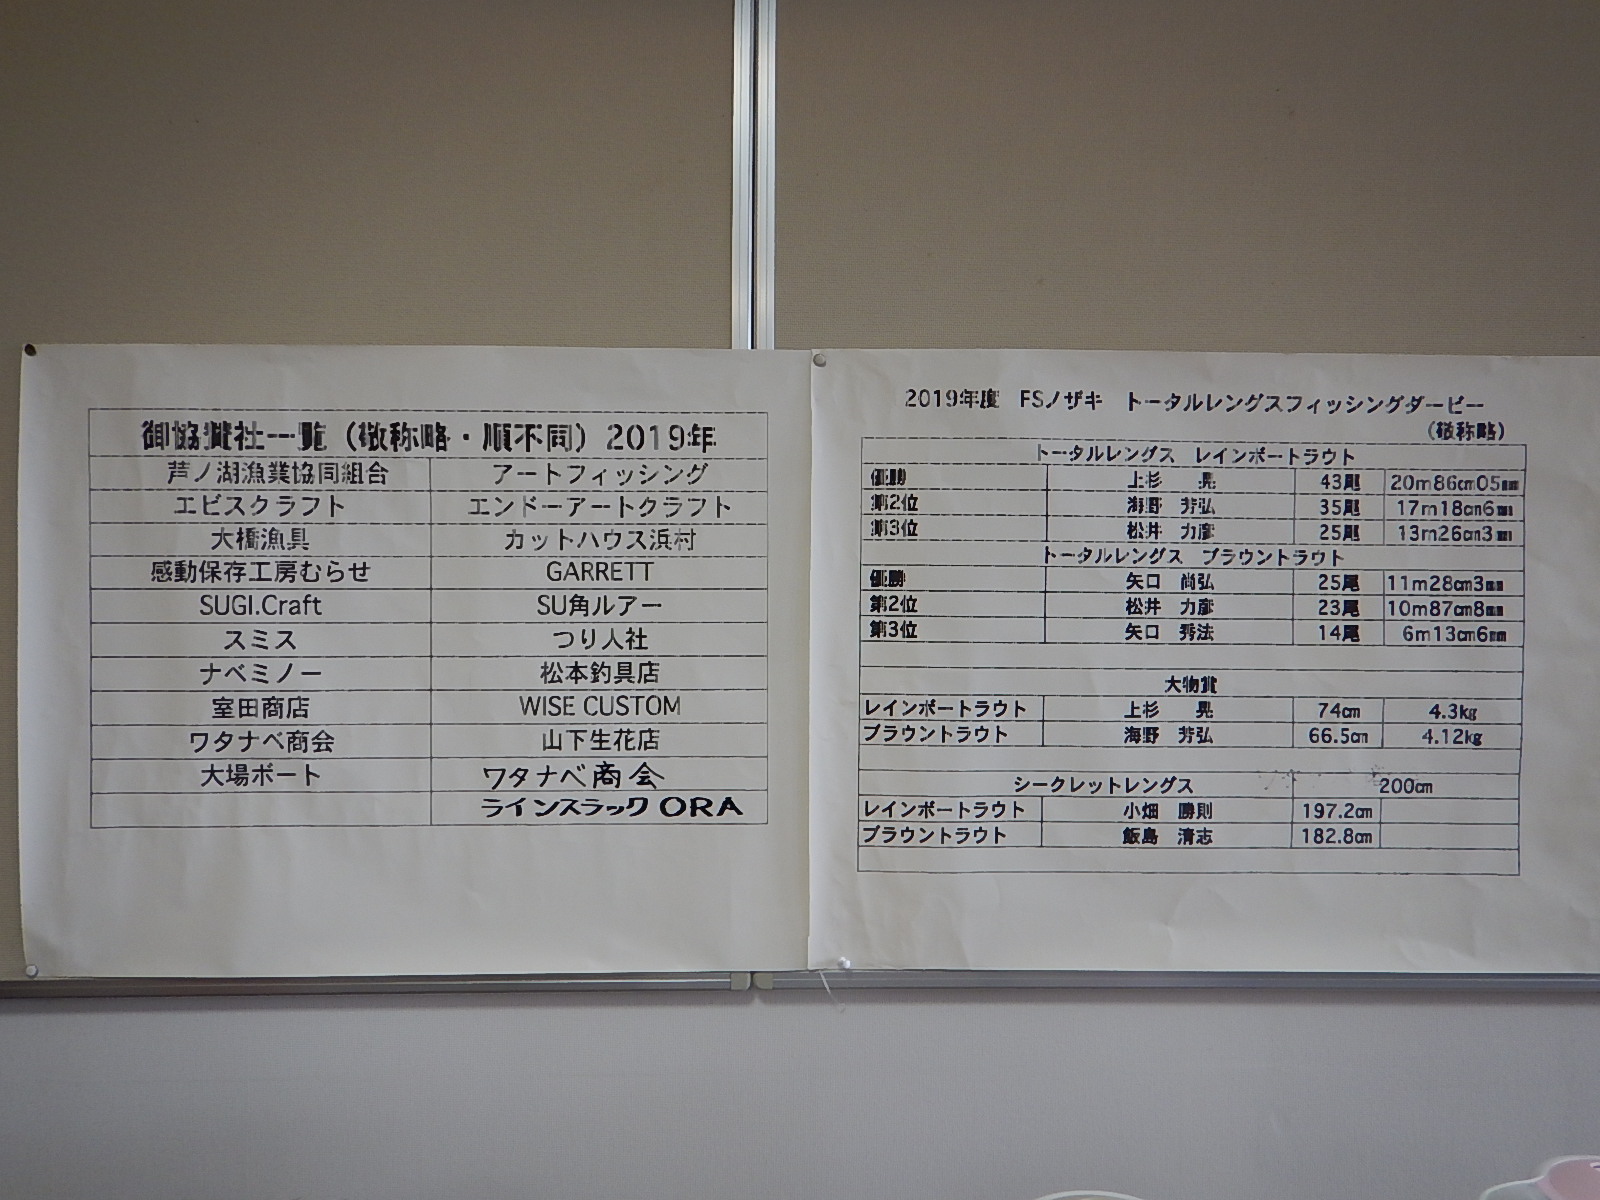 御協賛社一覧（敬称略・順不同）2019年
芦ノ湖漁業協同組合 アートフィッシング
エビスクラフト エンドーアートクラフト
大橋漁具 カットハウス浜村
感動保存工房むらせ GARRETT
SUGI.Craft SU角ルアー
スミス つり人社
ナベミノー 松本釣具店
室田商店 WISE CUSTOM
ワタナベ商会 山下生花店
大場ボート ワタナベ商会
ラインスラックORA
2019年度 FSノザキ トータルレングスフィッシングダービー
（敬称略）
トータルレングス レインボートラウト
優勝 上杉 晃 43尾 20m86cm05mm
第2位 海野 芳弘 35尾 17m18cm6mm
第3位 松井 力彦 25尾 13m26cm3mm
トータルレングス ブラウントラウト
優勝 矢口 尚弘 25尾 11m28cm3mm
第2位 松井 力彦 23尾 10m87cm8mm
第3位 矢口 秀法 14尾 6m13cm6mm
大物賞
レインボートラウト 上杉 晃 74cm 4.3kg
ブラウントラウト 海野 芳弘 66.5cm 4.12kg
シークレットレングス 200cm
レインボートラウト 小畑 勝則 197.2cm
ブラウントラウト 飯島 清志 182.8cm